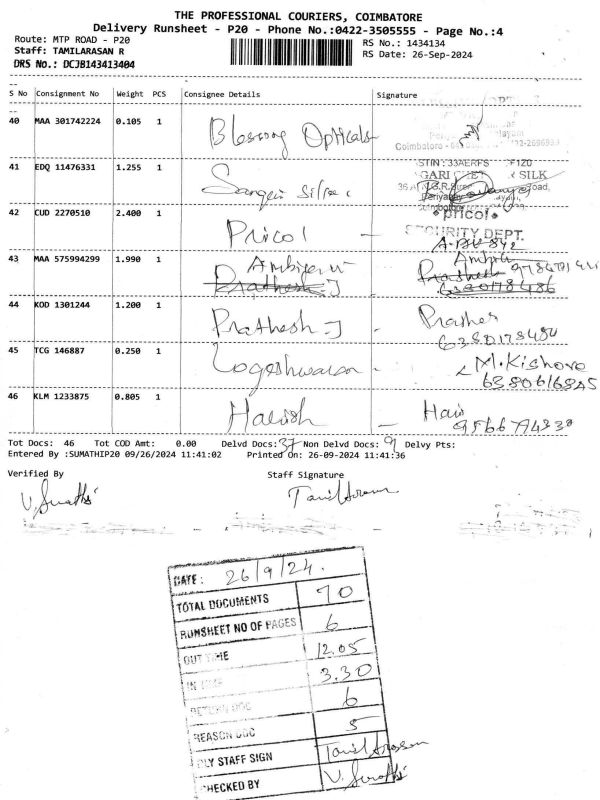 THE PROFESSIONAL COURIERS, COIMBATORE
Delivery Runsheet - P20 - Phone No.:0422-3505555 - Page No.:4
Route: MTP ROAD - P20
RS No.: 1434134
Staff: TAMILARASAN R
RS Date: 26-Sep-2024
DRS No.: DCJB143413404
S No Consignment No Weight PCS Consignee Details Signature
40 MAA 301742224 0.105 1 Blessing Opticals
Coimbatore
41 EDQ 11476331 1.255 1
SILK
42 CUD 2270510 2.400 1 Pricol -
pricol
SECURITY DEPT.
43 MAA 575994299 1.990 1
Prathesh J
6380178486
44 KOD 1301244 1.200 1 Prathesh J -
6380178484
45 TCG 146887 0.250 1 Logeshwaran - M.Kishore
6380616845
46 KLM 1233875 0.805 1 Harish - Hari
9566794830
Tot Docs: 46 Tot COD Amt: 0.00 Delvd Docs: 37 Non Delvd Docs: 9 Delvy Pts:
Entered By :SUMATHIP20 09/26/2024 11:41:02 Printed On: 26-09-2024 11:41:36
Verified By Staff Signature
V. Sumathi Tamilarasan
DATE : 26/9/24.
TOTAL DOCUMENTS 70
RUNSHEET NO OF PAGES 6
OUT TIME 12.05
IN TIME 3.30
RETURN DOC 6
REASON DOC 5
DLY STAFF SIGN Tamilarasan
CHECKED BY V. Sumathi